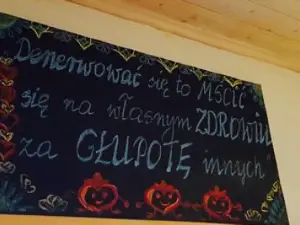 "Denerwować się to MŚCIĆ
się na własnym ZDROWIU
za GŁUPOTĘ innych"